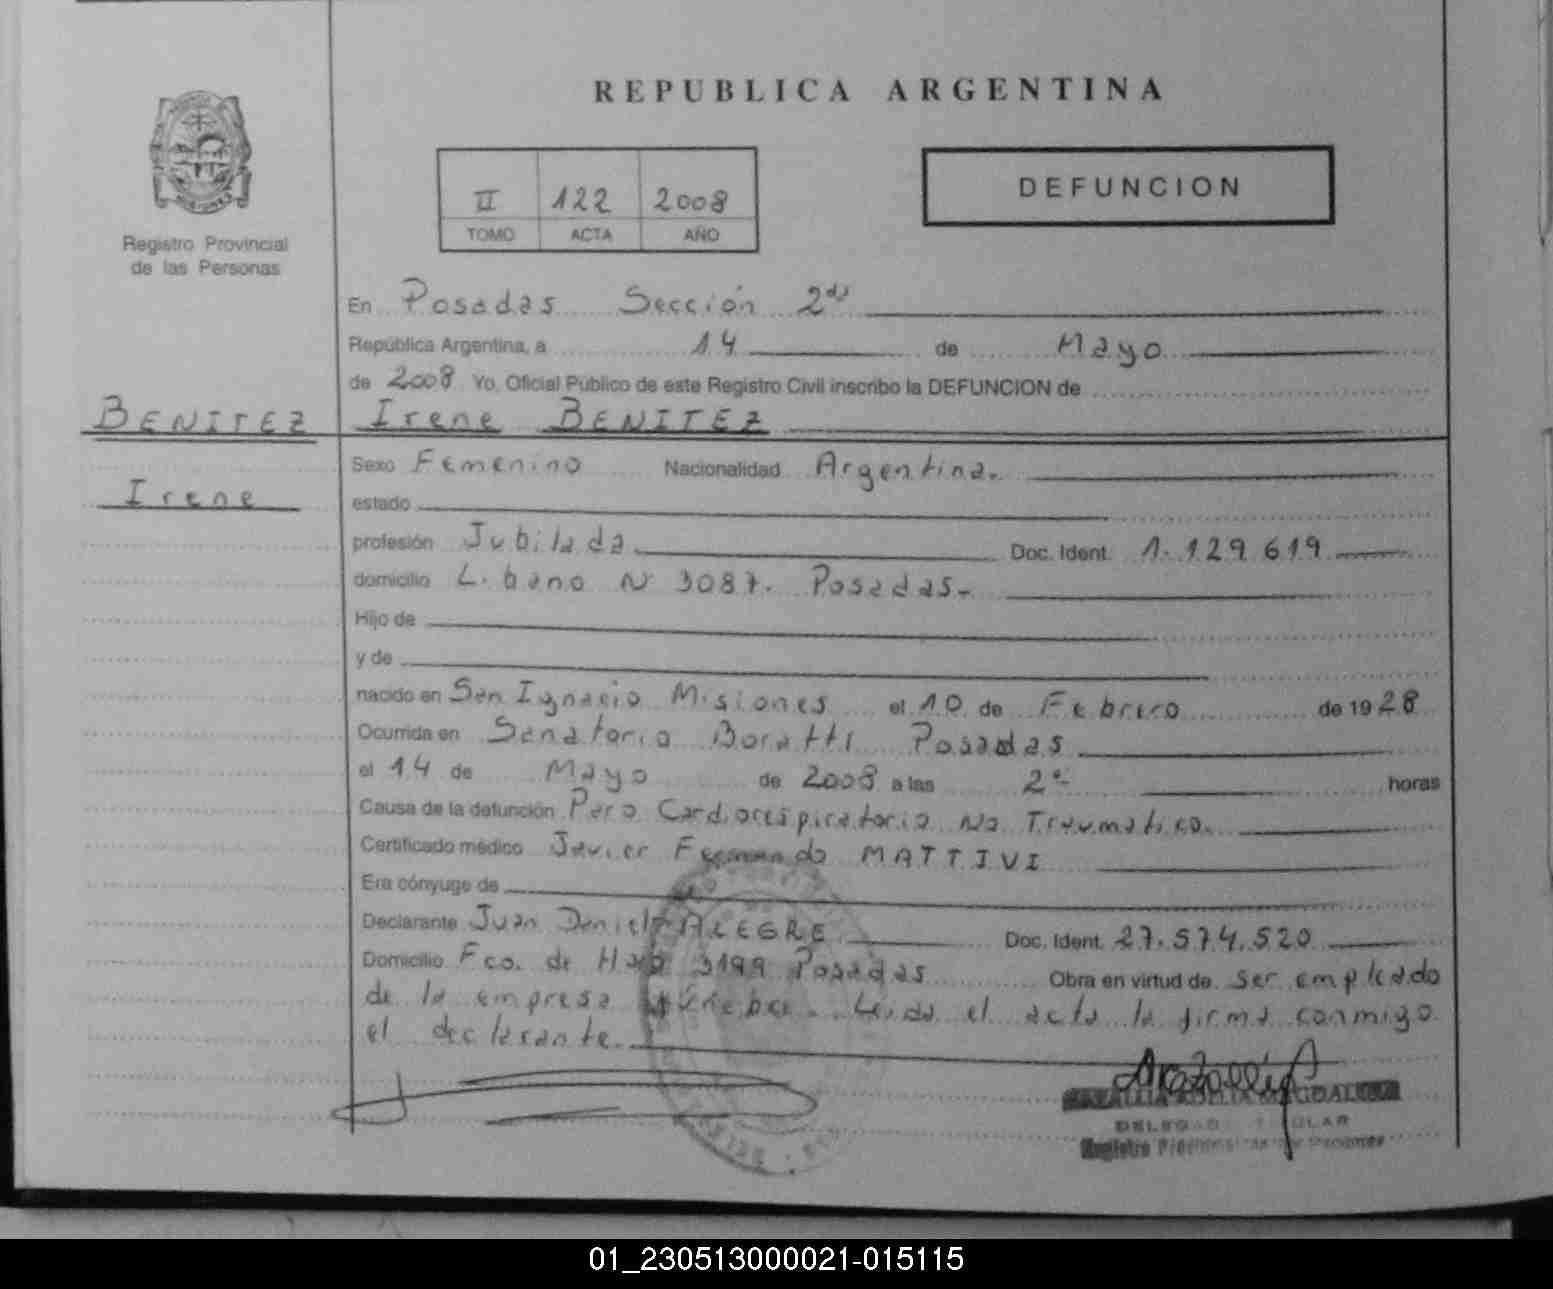 REPUBLICA ARGENTINA
II 122 2008
TOMO ACTA AÑO
DEFUNCION
Registro Provincial
de las Personas
En Posadas Sección 2da
República Argentina, a 14 de Mayo
de 2008 Yo, Oficial Público de este Registro Civil inscribo la DEFUNCION de
BENITEZ Irene BENITEZ
Sexo Femenino Nacionalidad Argentina.
Irene
estado
profesión Jubilada Doc. Ident. 1.129.619
domicilio Libano N 3087. Posadas.
Hijo de
y de
nacido en San Ignacio Misiones el 10 de Febrero de 1928
Ocurrida en Sanatorio Boratti Posadas
el 14 de Mayo de 2008 a las 2 horas
Causa de la defunción Paro Cardiorespiratorio No Traumatico.
Certificado médico Javier Fernando MATTIVI
Era cónyuge de
Declarante Juan Daniel ALEGRE Doc. Ident. 27.574.520
Domicilio Fco. de Haro 3199 Posadas Obra en virtud de ser empleado
de la empresa Leida el acta la firma conmigo
el declarante.
Registro Provincial
01_230513000021-015115